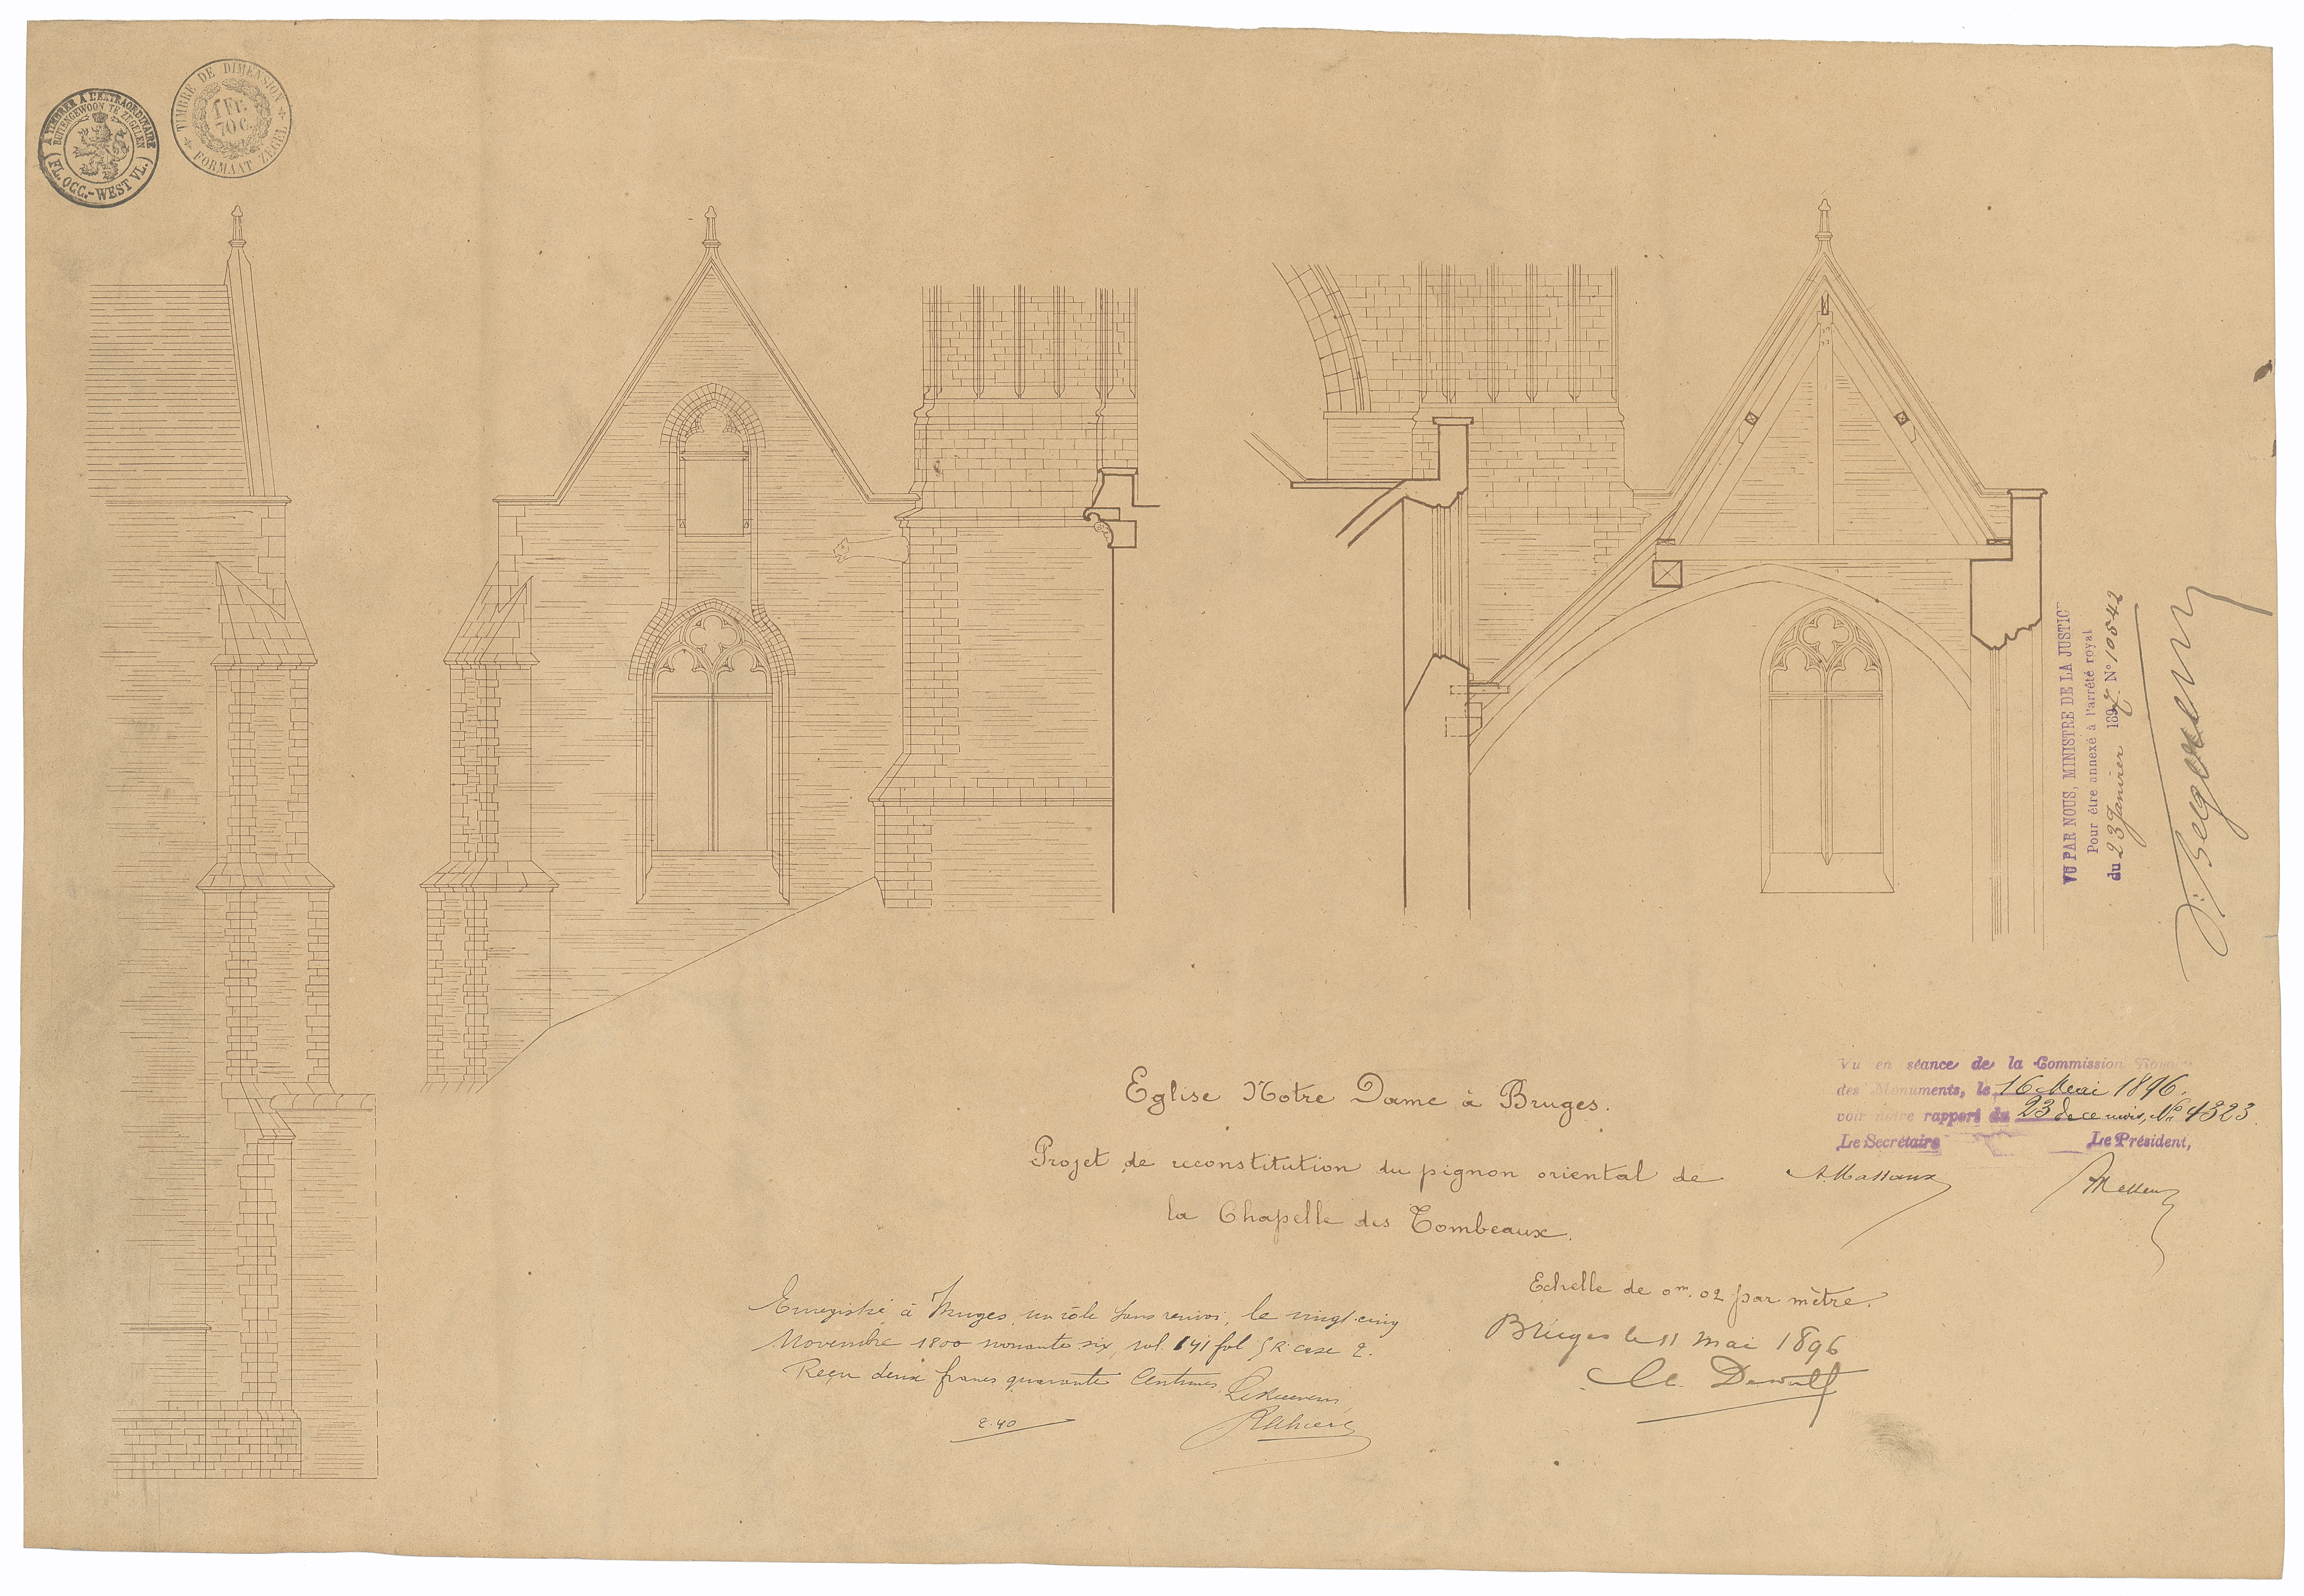 A TIMBRER A L'EXTRAORDINAIRE
BUITENGEWOON TE ZEGELEN
(FL. OCC.-WEST VL.)
TIMBRE DE DIMENSION
1 Fr.
70 C.
FORMAAT ZEGEL
VU PAR NOUS, MINISTRE DE LA JUSTICE
Pour être annexé à l'arrêté royal
du 23 Janvier 1897 N° 10542
Vu en séance de la Commission Royale
des Monuments, le 16 Mai 1896.
voir notre rapport du 23 de ce mois, N° 4323.
Le Secrétaire Le Président,
A. Massaux
Eglise Notre Dame à Bruges.
Projet de reconstitution du pignon oriental de
la Chapelle des Tombeaux.
Echelle de 0m.02 par mètre.
Bruges le 11 Mai 1896
Ch. Dewulf
Enregistré à Bruges, un rôle sans renvoi, le vingt cinq
Novembre 1800 nonante six, vol. 141 fol 5 R. case 2.
Reçu deux francs quarante Centimes.
Le Receveur,
2.40